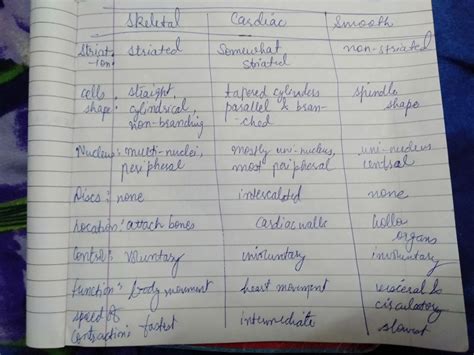 Skeletal Cardiac Smooth
Striat- striated Somewhat non-striated
ion: striated
cells straight, tapered cylinders spindle
shape: cylindrical, parallel & bran- shape
non-branding ched
Nucleus: multi-nuclei, mostly un-nucleus, uni-nucleus
peripheral most peripheral central
Discs: none intercalted none
Location: attach bones Cardiac walls hollo
organs
Control: voluntary involuntary involuntary
function: body movement heart movement visceral &
circulatory
speed of
contraction: fastest intermediate slowest